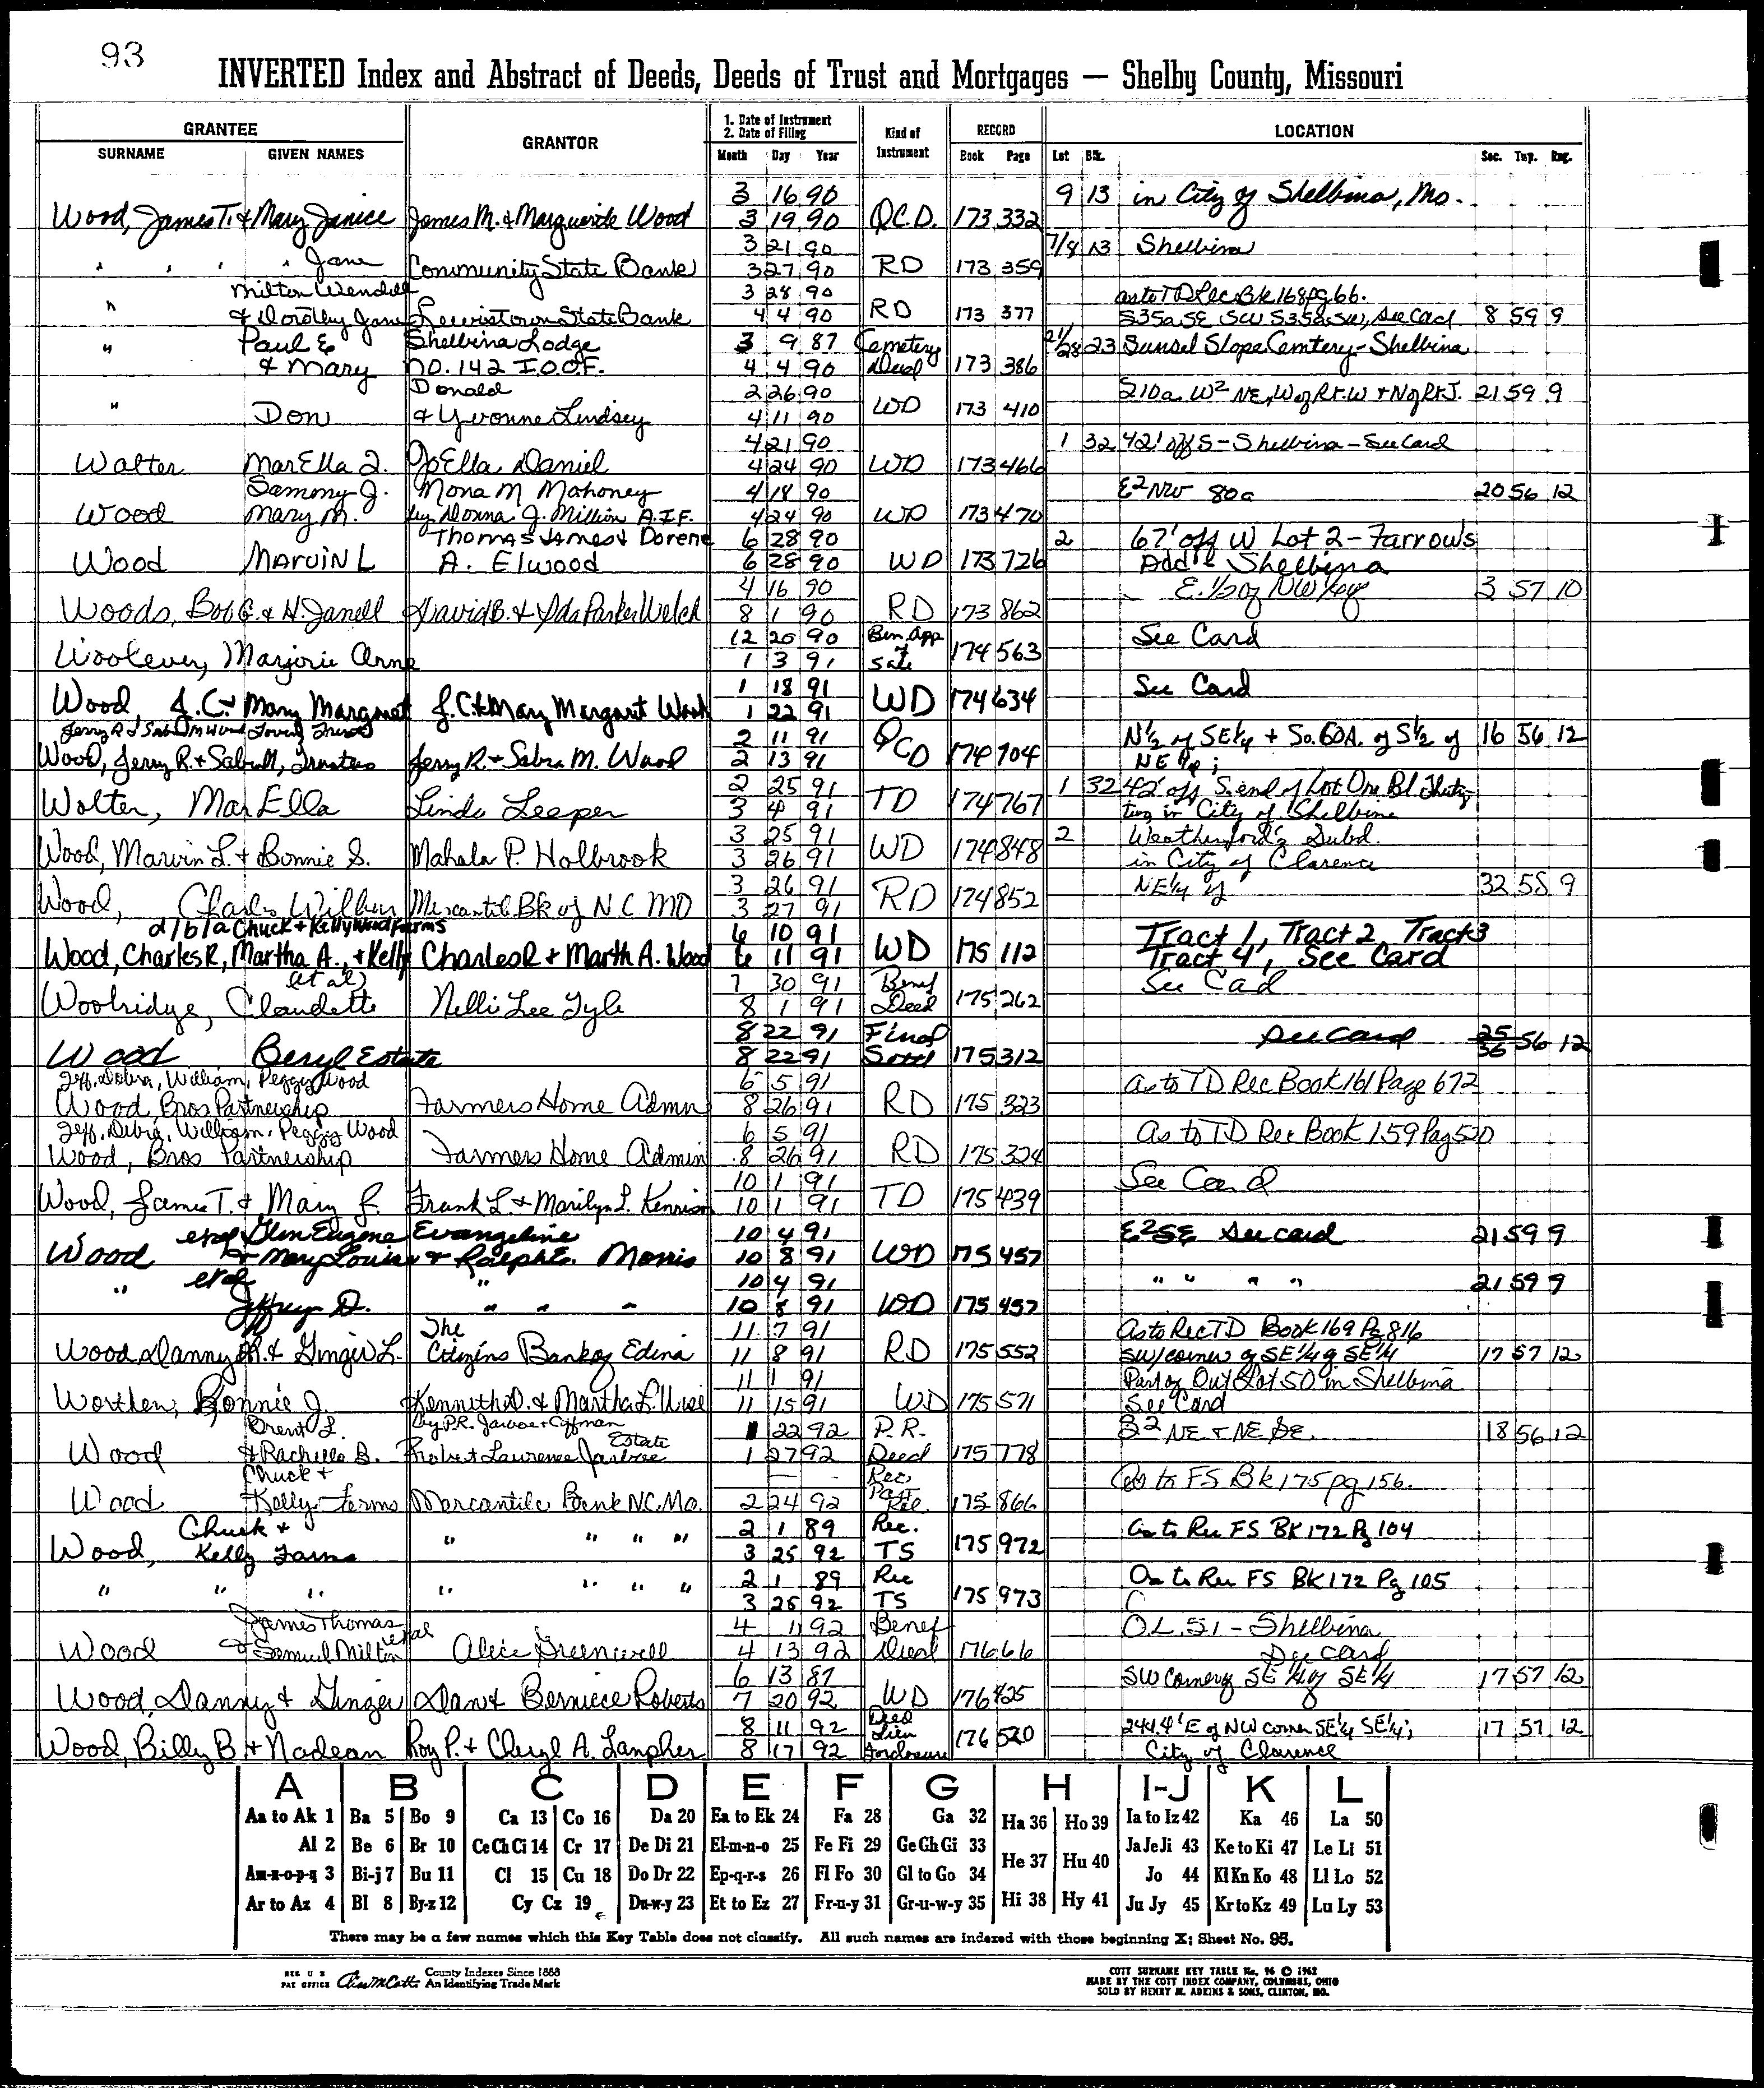 93
INVERTED Index and Abstract of Deeds, Deeds of Trust and Mortgages — Shelby County, Missouri
GRANTEE GRANTOR 1. Date of Instrument 2. Date of Filing Kind of Instrument RECORD LOCATION
SURNAME GIVEN NAMES Month Day Year Book Page Lot Blk. Sec. Twp. Rng.
3 16 90 9 13 in City of Shelbina, Mo.
Wood, James T. & Mary Janice James M. & Marguerite Wood 3 19 90 Q.C.D. 173 332
3 21 90 7/8 13 Shelbina
" " " " Jane Community State Bank 3 27 90 RD 173 359
Milton Wendell 3 28 90 as to TD Rec Bk 168 pg 66.
" & Dorothy Jane Lewistown State Bank 4 4 90 RD 173 377 S35a SE SW S35a SW, See Card 8 59 9
" Paul E Shelbina Lodge 3 9 87 Cemetery 23 Sunset Slope Cemtery - Shelbina
& Mary NO. 142 I.O.O.F. 4 4 90 Deed 173 386
Donald 2 26 90 S10a W2 NE, W of Rt. W + N of Rt J. 21 59 9
" Don & Yvonne Lindsey 4 11 90 WD 173 410
4 21 90 1 32 42' off S - Shelbina - See Card
Walter MarElla J. JoElla Daniel 4 24 90 WD 173 466
Sammy J. Mona M Mahoney 4 18 90 E2 NW 80a 20 56 12
Wood Mary M. by Donna J. Million A.I.F. 4 24 90 WD 173 470
Thomas James & Dorene 6 28 90 2 67' off W Lot 2 - Farrow's
Wood MARVIN L A. Elwood 6 28 90 WD 173 726 Add. Shelbina
4 16 90 E. 1/2 of NW 1/4 of 3 57 10
Woods, Bob G. & H. Janell David B. & Ida Parker Welch 8 1 90 RD 173 862
12 20 90 Ben. App. See Card
Woolever, Marjorie Anne 1 3 91 of Sale 174 563
1 18 91 See Card
Wood, J.C. & Mary Margaret J.C. & Mary Margaret Wood 1 22 91 WD 174 634
2 11 91 QCD N 1/2 of SE 1/4 + So. 60A. of S 1/2 of 16 56 12
Wood, Jerry R. & Sabra M, Trustees Jerry R. & Sabra M. Wood 2 13 91 174 704 NE 1/4;
2 25 91 1 32 42' off S. end of Lot One Bl. Thirty
Wolter, MarElla Linda Leeper 3 4 91 TD 174 767 two in City of Shelbina
3 25 91 2 Weatherford's Subd.
Wood, Marvin L. & Bonnie S. Mahala P. Holbrook 3 26 91 WD 174 848 in City of Clarence
3 26 91 NE 1/4 of 32 58 9
Wood, Charles Wilbur Mercantil Bk of N C MO 3 27 91 RD 174 852
d/b/a Chuck + Kelly Wood Farms 6 10 91 Tract 1, Tract 2, Tract 3
Wood, Charles R, Martha A., + Kelly Charles R + Marth A. Wood 6 11 91 WD 175 112 Tract 4, See Card
(et al) 7 30 91 Benef See Card
Woolridge, Claudette Nelli Lee Lyle 8 1 91 Deed 175 262
8 22 91 Final See Card 25/36 56 12
Wood Beryl Estate 8 22 91 175 312
Jeff, Debra, William, Peggy Wood 6 5 91 As to TD Rec Book 161 Page 672
Wood Bros Partnership Farmers Home Admn 8 26 91 RD 175 323
Jeff, Debra, William, Peggy Wood 6 5 91 As to TD Rec Book 159 Pag 520
Wood, Bros Partnership Farmers Home Admin 8 26 91 RD 175 324
10 1 91 See Card
Wood, James T. & Mary J. Frank L & Marilyn L. Kennison 10 1 91 TD 175 439
et al Glen Eugene Evangeline 10 4 91 E2 SE See card 21 59 9
Wood & Mary Louise & Ralph E. Morris 10 8 91 WD 175 457
" et al " 10 4 91 " " " " 21 59 9
Jeffrey D. " " " 10 8 91 WD 175 457
The 11 7 91 As to Rec TD Book 169 Pg 816
Wood Danny R. & Ginger L. Citizens Bank of Edina 11 8 91 RD 175 552 SW corner of SE 1/4 of SE 1/4 17 57 12
11 1 91 Part of Out Lot 50 in Shelbina
Worthen, Bonnie J. Kenneth D. & Martha L. Wise 11 15 91 WD 175 571 See Card
Brent L. by P.R. 1 22 92 P.R. S2 NE & NE SE. 18 56 12
Wood & Rachelle B. Robert Laurence Estate 1 27 92 Deed 175 778
Chuck + Rec As to FS Bk 175 pg 156.
Wood Kelly Farms Mercantile Bank N.C. Mo. 2 24 92 Part Rel. 175 866
Chuck + 2 1 89 Rec. As to Rec FS BK 172 Pg 104
Wood, Kelly Farms " " " " 3 25 92 TS 175 972
" " " " " " " 2 1 89 Rec As to Rec FS BK 172 Pg 105
3 25 92 TS 175 973
James Thomas 4 1 92 Benef O.L. 51 - Shelbina
Wood & Samuel Milton et al Alice Greenwell 4 13 92 Deed 176 66 See Card
6 13 87 SW Corner of SE 1/4 of SE 1/4 17 57 12
Wood, Danny & Ginger Dan & Berniece Roberts 7 20 92 WD 176 425
8 11 92 Deed Lien 244.4' E of NW corner SE 1/4 SE 1/4; 17 57 12
Wood, Billy B & Nadean Roy P. & Cheryl A. Lanpher 8 17 92 Forclosure 176 520 City of Clarence
A B C D E F G H I-J K L
Aa to Ak 1 Ba 5 Bo 9 Ca 13 Co 16 Da 20 Ea to Ek 24 Fa 28 Ga 32 Ha 36 Ho 39 Ia to Iz 42 Ka 46 La 50
Al 2 Be 6 Br 10 Ce Ch Ci 14 Cr 17 De Di 21 El-m-n-o 25 Fe Fi 29 Ge Gh Gi 33 He 37 Hu 40 Ja Je Ji 43 Ke to Ki 47 Le Li 51
Am-n-o-p-q 3 Bi-j 7 Bu 11 Cl 15 Cu 18 Do Dr 22 Ep-q-r-s 26 Fl Fo 30 Gl to Go 34 Jo 44 Kl Kn Ko 48 Ll Lo 52
Ar to Az 4 Bl 8 By-z 12 Cy Cz 19 Du-w-y 23 Et to Ez 27 Fr-u-y 31 Gr-u-w-y 35 Hi 38 Hy 41 Ju Jy 45 Kr to Kz 49 Lu Ly 53
There may be a few names which this Key Table does not classify. All such names are indexed with those beginning X; Sheet No. 95.
REG U S PAT OFFICE County Indexes Since 1888 An Identifying Trade Mark
COTT SURNAME KEY TABLE No. 96 © 1962
MADE BY THE COTT INDEX COMPANY, COLUMBUS, OHIO
SOLD BY HENRY M. ADKINS & SONS, CLINTON, MO.